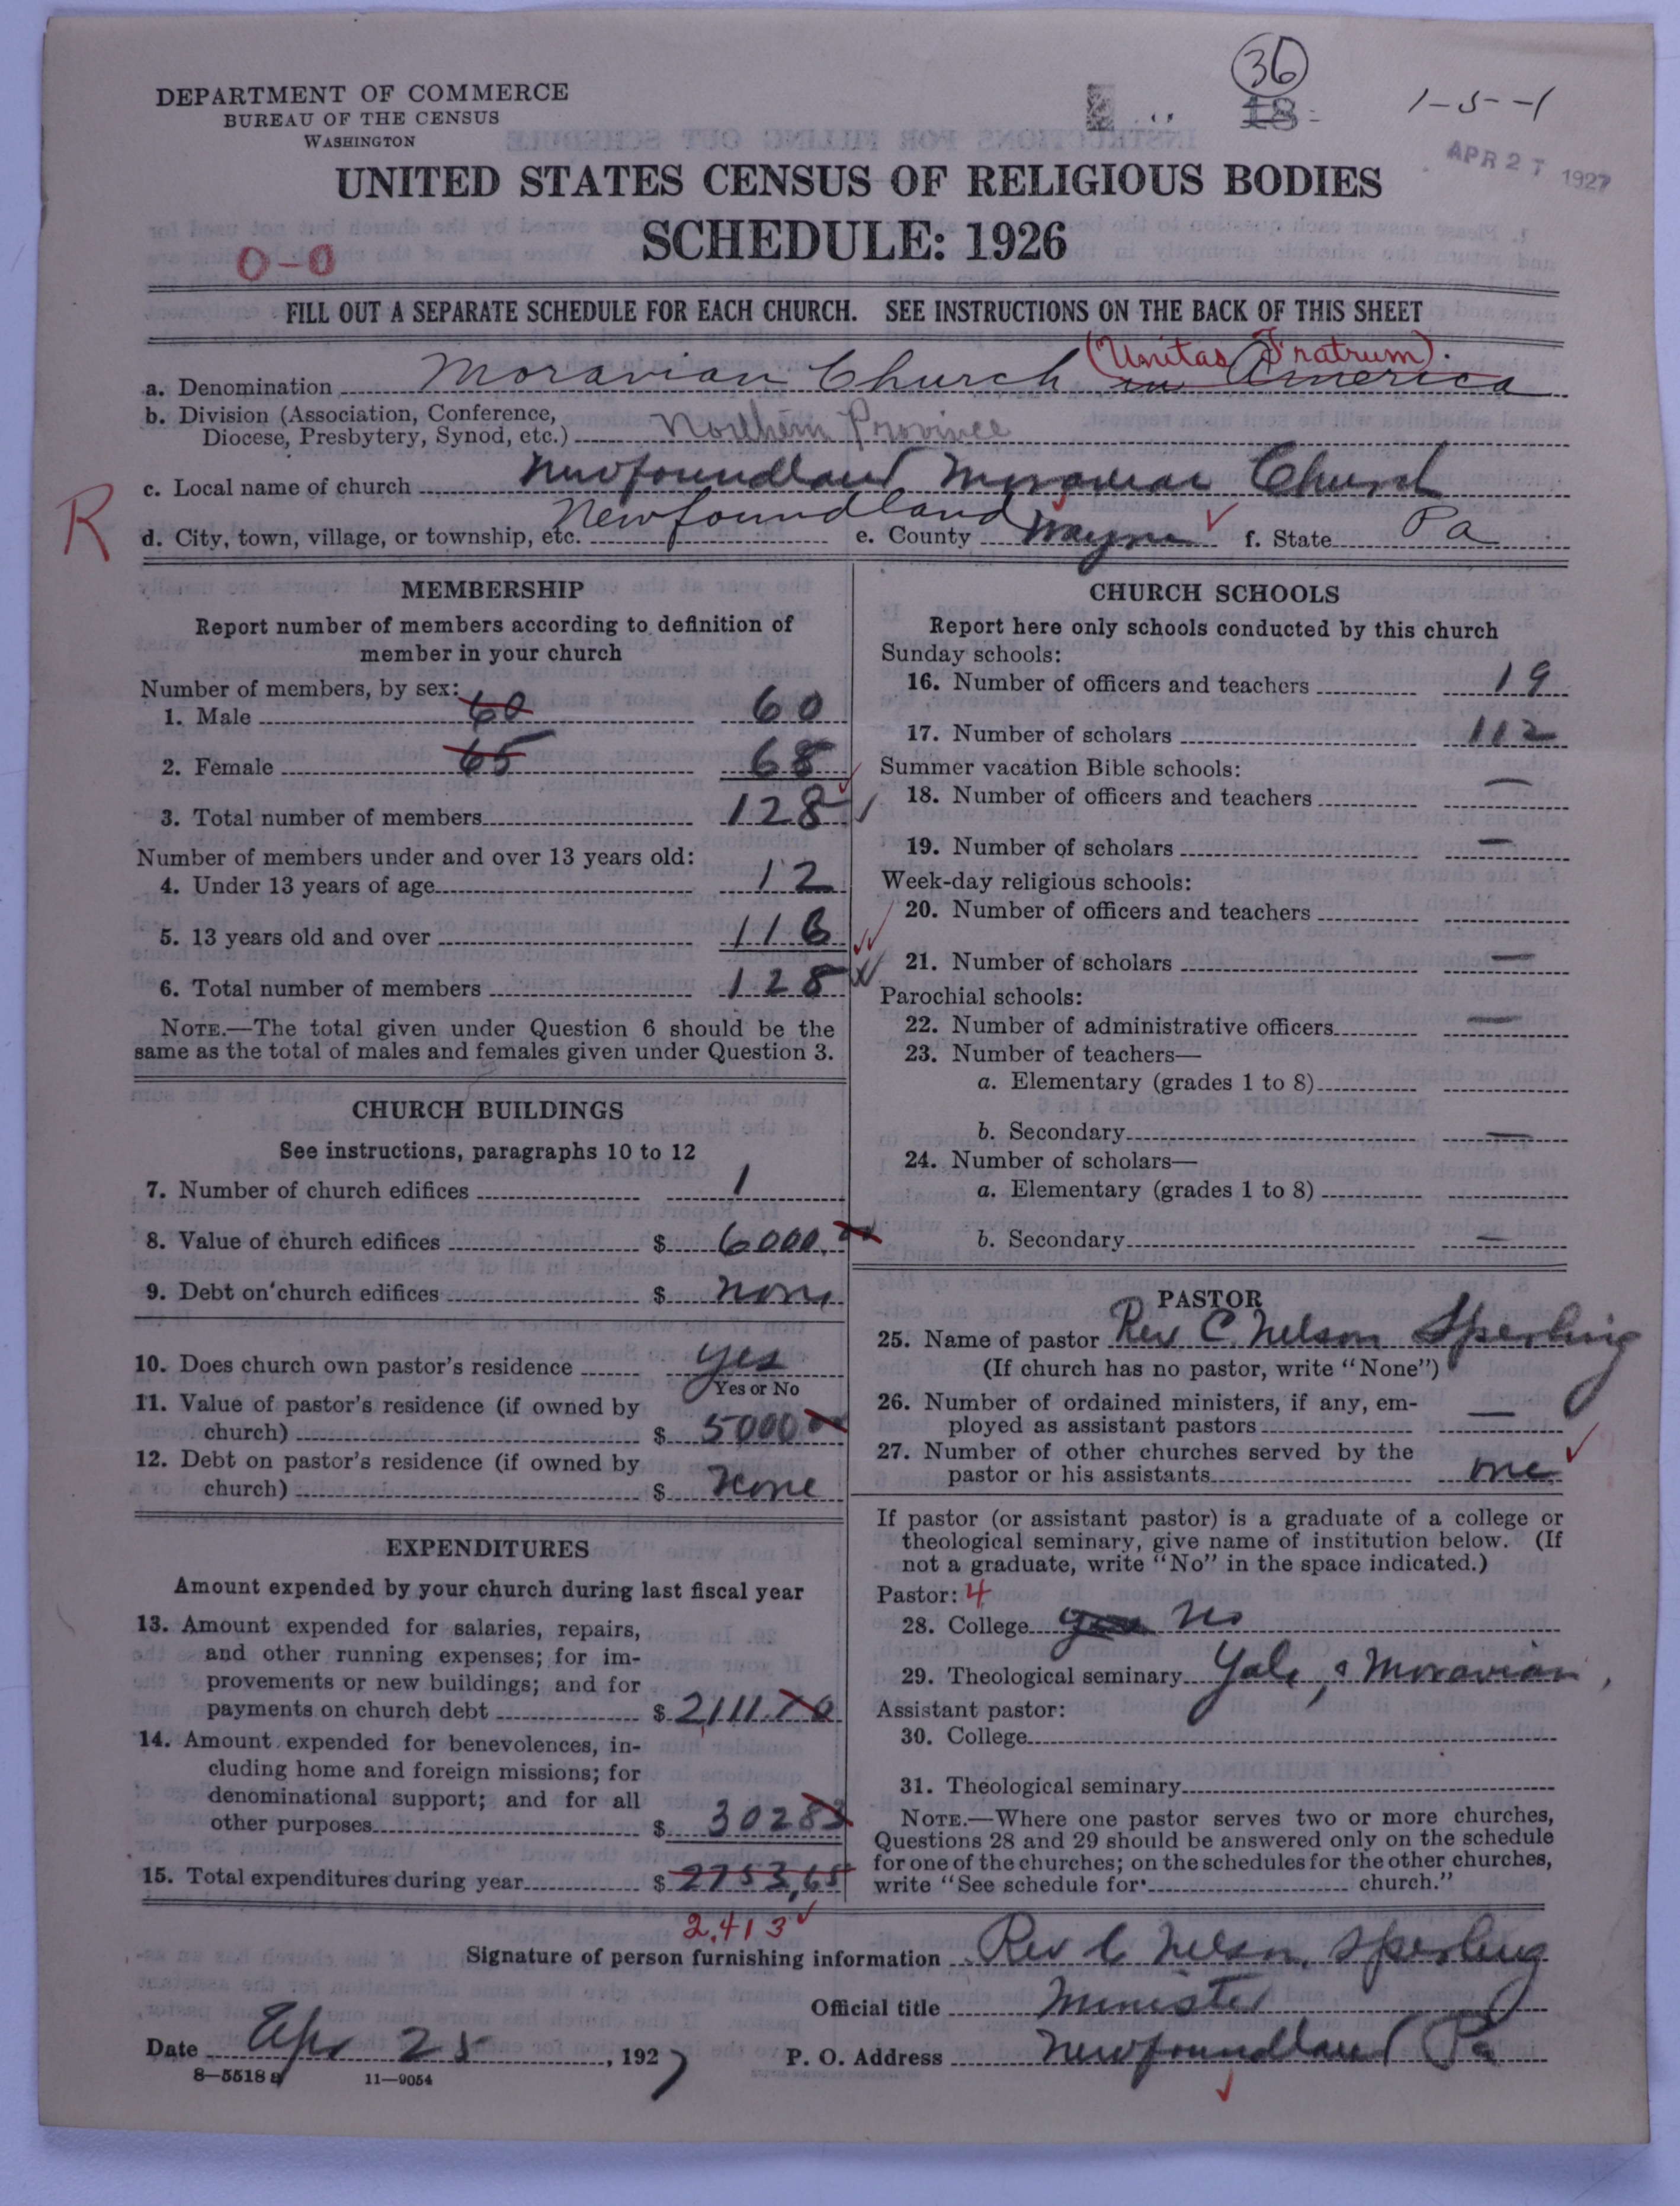 36
18
1-5-1
APR 27 1927
DEPARTMENT OF COMMERCE
BUREAU OF THE CENSUS
WASHINGTON
UNITED STATES CENSUS OF RELIGIOUS BODIES
SCHEDULE: 1926
0-0
FILL OUT A SEPARATE SCHEDULE FOR EACH CHURCH. SEE INSTRUCTIONS ON THE BACK OF THIS SHEET
(Unitas Fratrum).
a. Denomination Moravian Church in America
b. Division (Association, Conference,
Diocese, Presbytery, Synod, etc.) Northern Province
c. Local name of church Newfoundland Moravian Church
R
d. City, town, village, or township, etc. Newfoundland e. County Wayne f. State Pa
MEMBERSHIP
Report number of members according to definition of
member in your church
Number of members, by sex:
1. Male 60 60
2. Female 65 68
3. Total number of members 128
Number of members under and over 13 years old:
4. Under 13 years of age 12
5. 13 years old and over 116
6. Total number of members 128
NOTE.—The total given under Question 6 should be the
same as the total of males and females given under Question 3.
CHURCH BUILDINGS
See instructions, paragraphs 10 to 12
7. Number of church edifices 1
8. Value of church edifices $ 6000.00
9. Debt on church edifices $ none
10. Does church own pastor's residence yes
Yes or No
11. Value of pastor's residence (if owned by
church) $ 5000 00
12. Debt on pastor's residence (if owned by
church) $ None
EXPENDITURES
Amount expended by your church during last fiscal year
13. Amount expended for salaries, repairs,
and other running expenses; for im-
provements or new buildings; and for
payments on church debt $ 2,111.70
14. Amount expended for benevolences, in-
cluding home and foreign missions; for
denominational support; and for all
other purposes $ 302 83
15. Total expenditures during year $ 2753,65
2,413
CHURCH SCHOOLS
Report here only schools conducted by this church
Sunday schools:
16. Number of officers and teachers 19
17. Number of scholars 112
Summer vacation Bible schools:
18. Number of officers and teachers —
19. Number of scholars —
Week-day religious schools:
20. Number of officers and teachers
21. Number of scholars —
Parochial schools:
22. Number of administrative officers —
23. Number of teachers—
a. Elementary (grades 1 to 8)
b. Secondary —
24. Number of scholars—
a. Elementary (grades 1 to 8)
b. Secondary —
PASTOR
25. Name of pastor Rev C. Nelson Sperling
(If church has no pastor, write "None")
26. Number of ordained ministers, if any, em-
ployed as assistant pastors —
27. Number of other churches served by the
pastor or his assistants one
If pastor (or assistant pastor) is a graduate of a college or
theological seminary, give name of institution below. (If
not a graduate, write "No" in the space indicated.)
Pastor: 4
28. College No
29. Theological seminary Yale, & Moravian,
Assistant pastor:
30. College
31. Theological seminary
NOTE.—Where one pastor serves two or more churches,
Questions 28 and 29 should be answered only on the schedule
for one of the churches; on the schedules for the other churches,
write "See schedule for church."
Signature of person furnishing information Rev C Nelson Sperling
Official title Minister
Date Apr 25, 1927 P. O. Address Newfoundland Pa
8—5518 a 11—9054